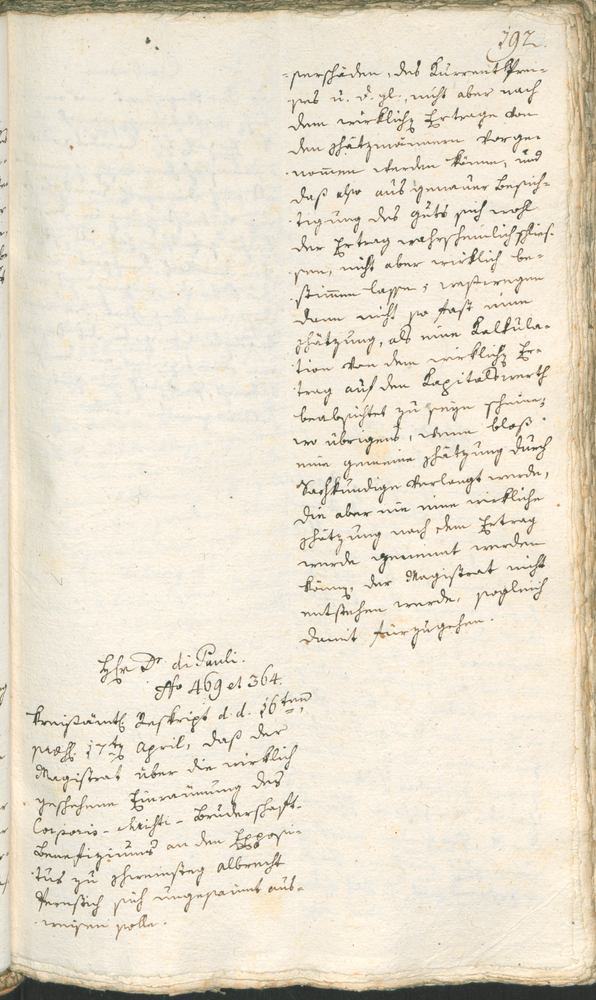 192.
-sserschäden, des Kurrent Prei-
ses u. d. gl., nicht aber nach
dem wirklichen Ertrage von
den Schätzmännern vorge-
nommen werden könne, und
daß also aus genauer Besich-
tigung des Guts sich wohl
der Ertrag wahrscheinlich schlies-
sen, nicht aber wirklich be-
stimmen lasse; weswegen
dann nicht so fast eine
Schätzung, als eine Kalkula-
tion von dem wirklichen Er-
trag auf den Kapitalswerth
beabsichtet zu seyn scheine;
wo übrigens, wenn bloß
eine gemeine Schätzung durch
Sachkündige verlangt werde,
die aber nie eine wirkliche
Schätzung nach dem Ertrag
werde genannt werden
können, der Magistrat nicht
entstehen werde, sogleich
damit fürzugehen.
Hhr Dr. di Pauli.
ffo 469 et 364.
Kreisämtl. Reskript d. d. 16ten
præs. 17ten April, daß der
Magistrat über die wirklich
geschehene Einräumung des
Corporis-Christi-Bruderschaft-
Benefiziums an den Exposi-
tus zu Ehreinsteg Albrecht
sich ungesäumt aus-
weisen solle.